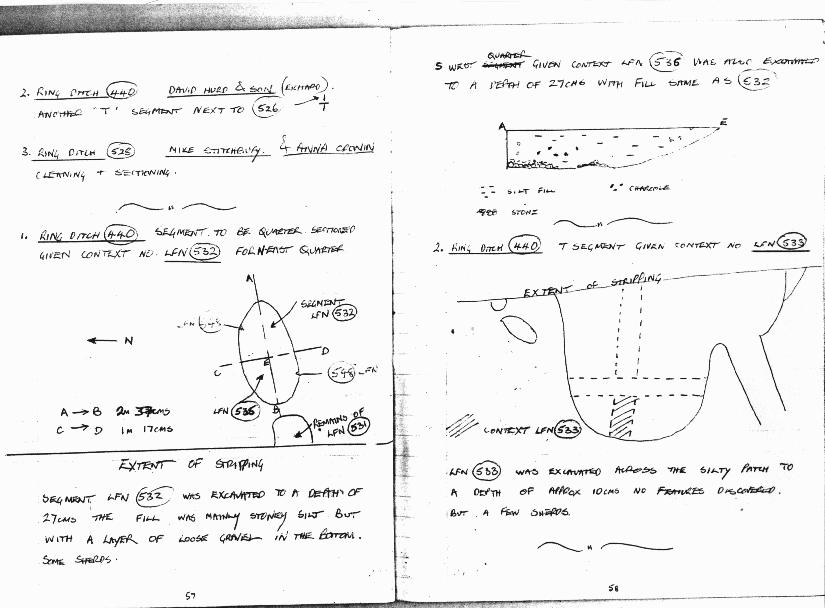 2. RING DITCH 440 DAVID HURD & SON (RICHARD).
ANOTHER 'T' SEGMENT NEXT TO 526
1
T
3. RING DITCH 528 MIKE STITCHBURY. & ANNA CRONIN
CLEANING + SECTIONING.
"
1. RING DITCH 440 SEGMENT TO BE QUARTER SECTIONED
GIVEN CONTEXT NO. LFN 532 FOR NEAST QUARTER
A
SEGMENT
LFN 532
LFN 548
N
D
E
C
548 LFN
LFN 536
B
A → B 2M 37CMS
C → D 1M 17CMS
REMAINS OF
LFN 531
EXTENT OF STRIPPING
SEGMENT LFN 532 WAS EXCAVATED TO A DEPTH OF
27CMS THE FILL WAS MAINLY STONEY SILT BUT
WITH A LAYER OF LOOSE GRAVEL IN THE BOTTOM.
SOME SHERDS.
57
QUARTER
S WEST SEGMENT GIVEN CONTEXT LFN 536 WAS ALSO EXCAVATED
TO A DEPTH OF 27CMS WITH FILL SAME AS 532
A
E
SILT FILL
CHARCOLE
STONE
"
2. RING DITCH 440 T SEGMENT GIVEN CONTEXT NO LFN 533
EXTENT OF STRIPPING
CONTEXT LFN 533
LFN 533 WAS EXCAVATED ACROSS THE SILTY PATCH TO
A DEPTH OF APPROX 10CMS NO FEATURES DISCOVERED.
BUT A FEW SHERDS.
"
58